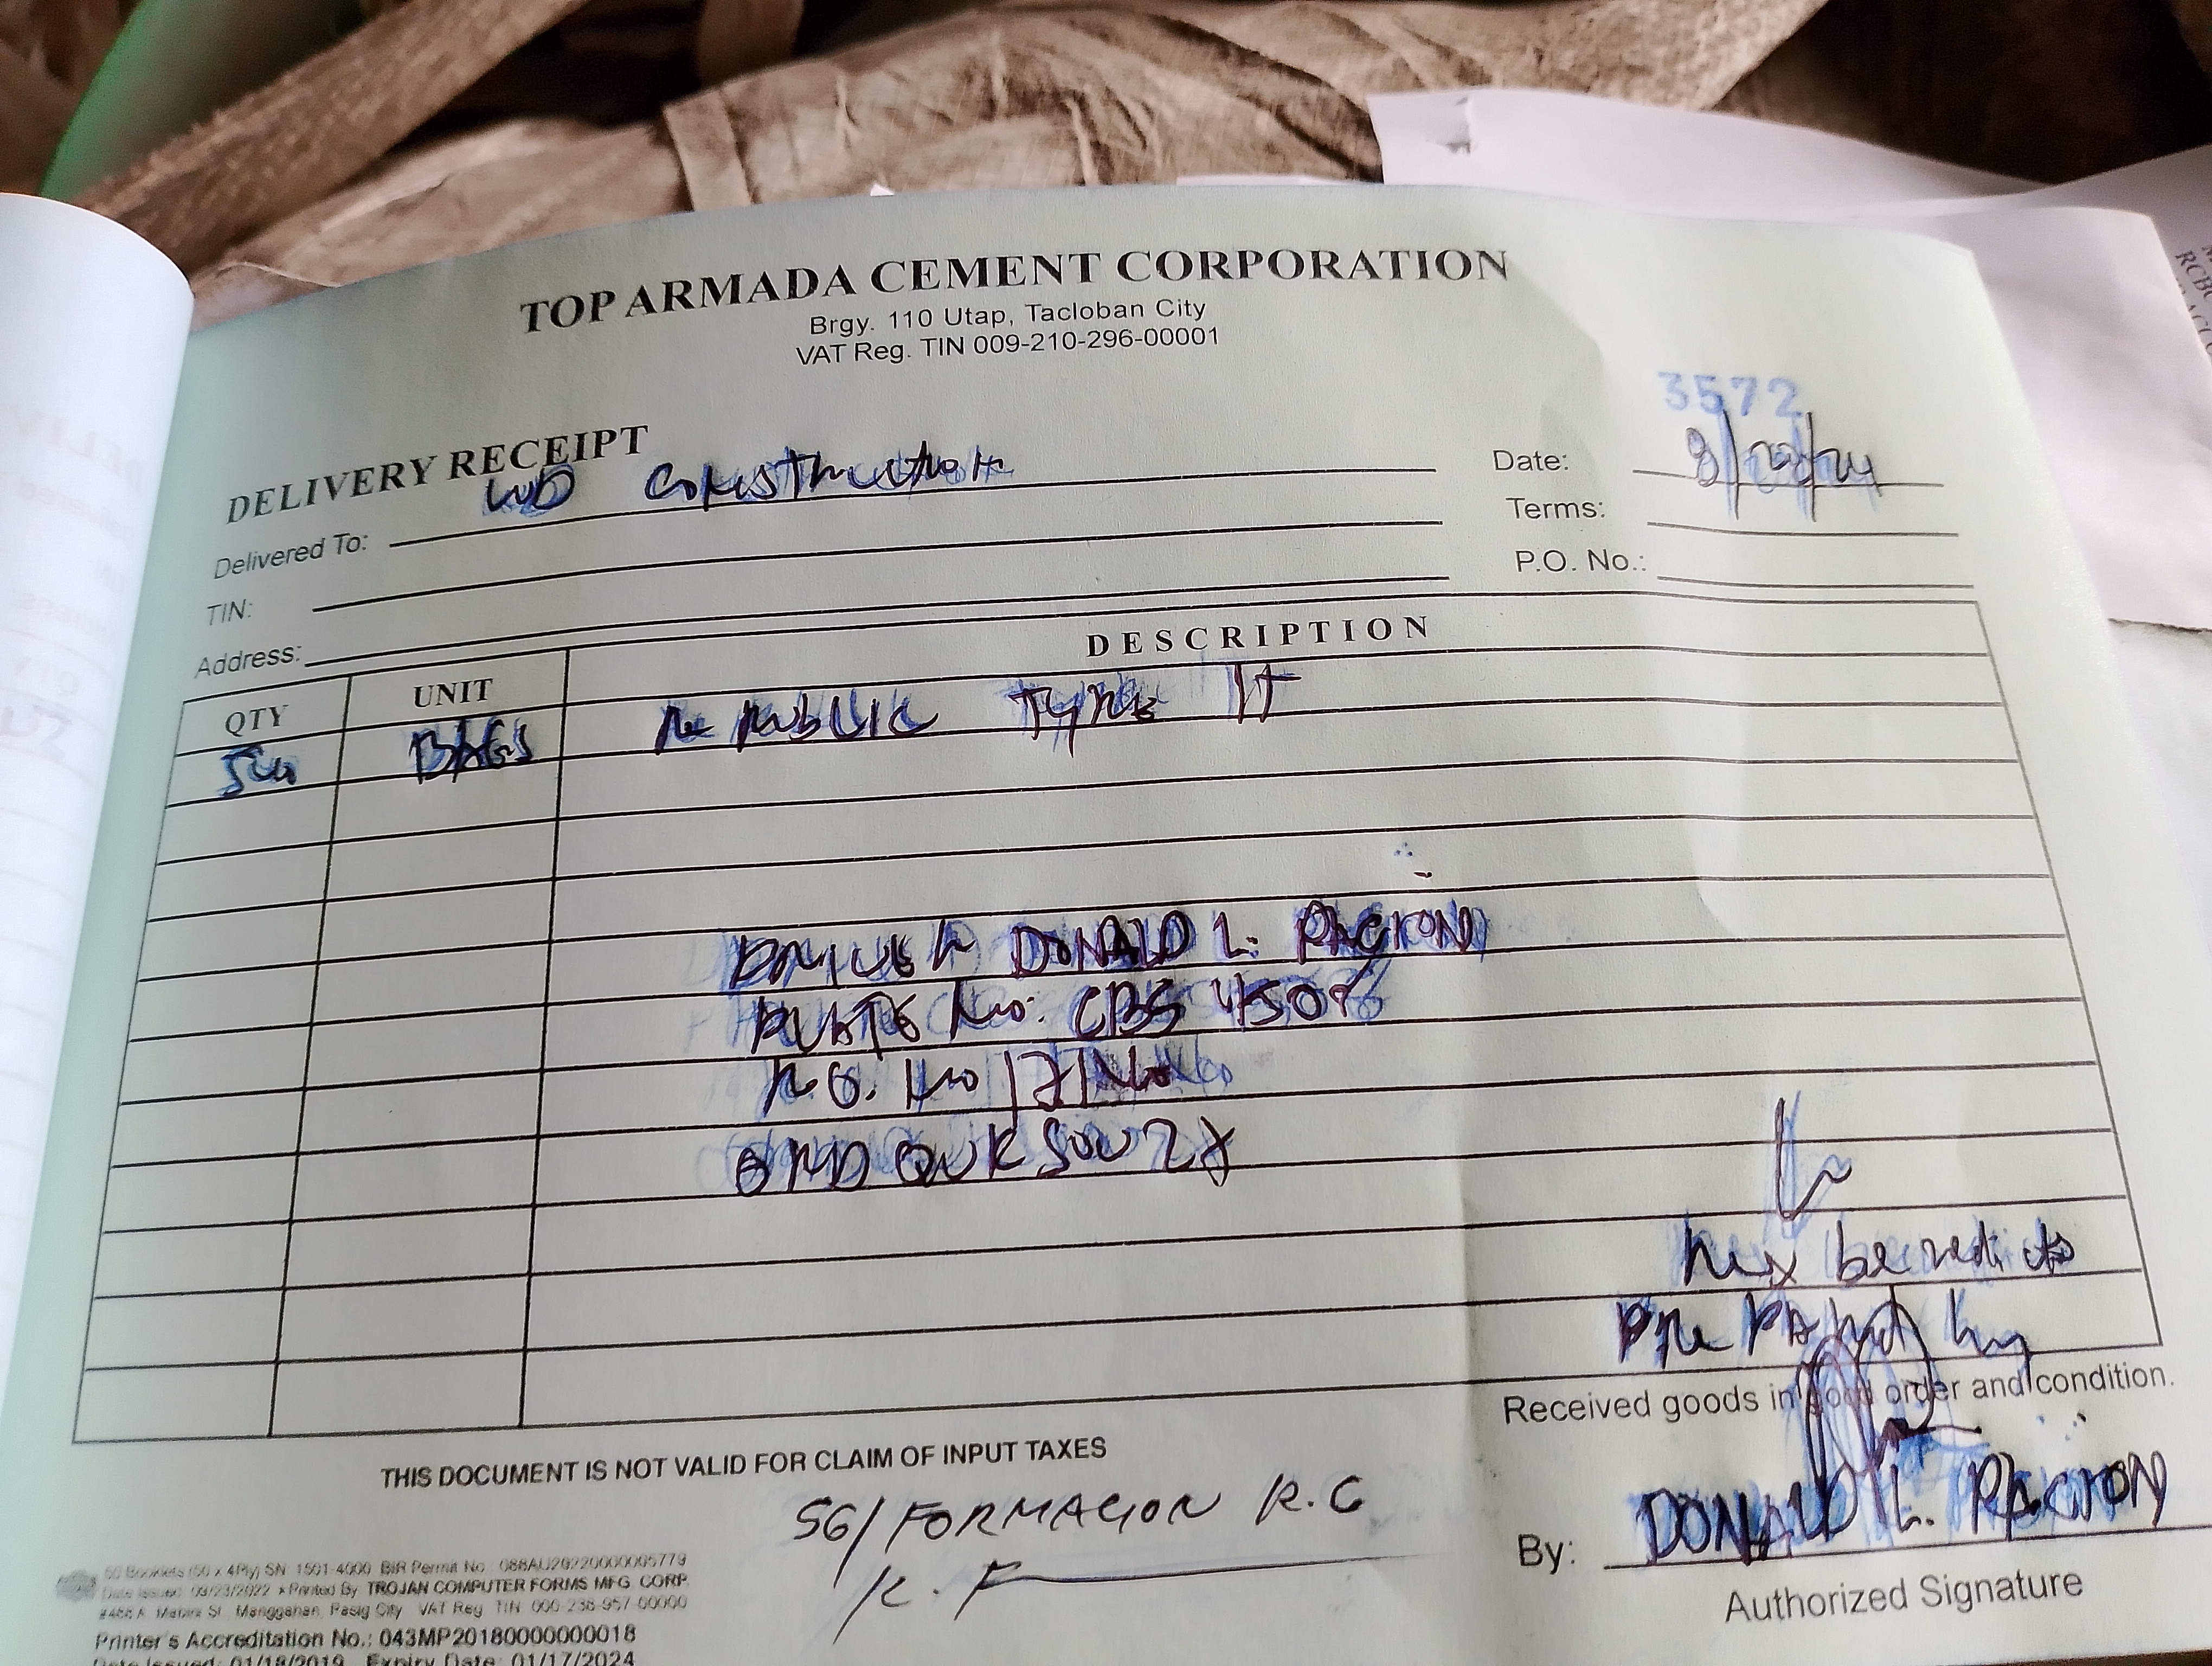 TOP ARMADA CEMENT CORPORATION
Brgy. 110 Utap, Tacloban City
VAT Reg. TIN 009-210-296-00001
3572
DELIVERY RECEIPT
Delivered To: Construction
Date:
TIN:
Terms:
Address:
P.O. No.:
QTY UNIT DESCRIPTION
BAGS Republic Type
DRIVER DONALD L. PACION
PLATE No: CBS 4508
Rex benedicto
Prepared by
Received goods in good order and condition.
THIS DOCUMENT IS NOT VALID FOR CLAIM OF INPUT TAXES
SG/FORMACION R.G
R.F
By: DONALD L. PACION
Authorized Signature
50 Booklets (50 x 4Ply) SN 1501-4000 BIR Permit No.
Date Issued: 09/23/2022 Printed By TROJAN COMPUTER FORMS MFG CORP.
Manggahan, Pasig City VAT Reg TIN 000-238-957-00000
Printer's Accreditation No.: 043MP20180000000018
Date Issued: 01/18/2019 Expiry Date: 01/17/2024